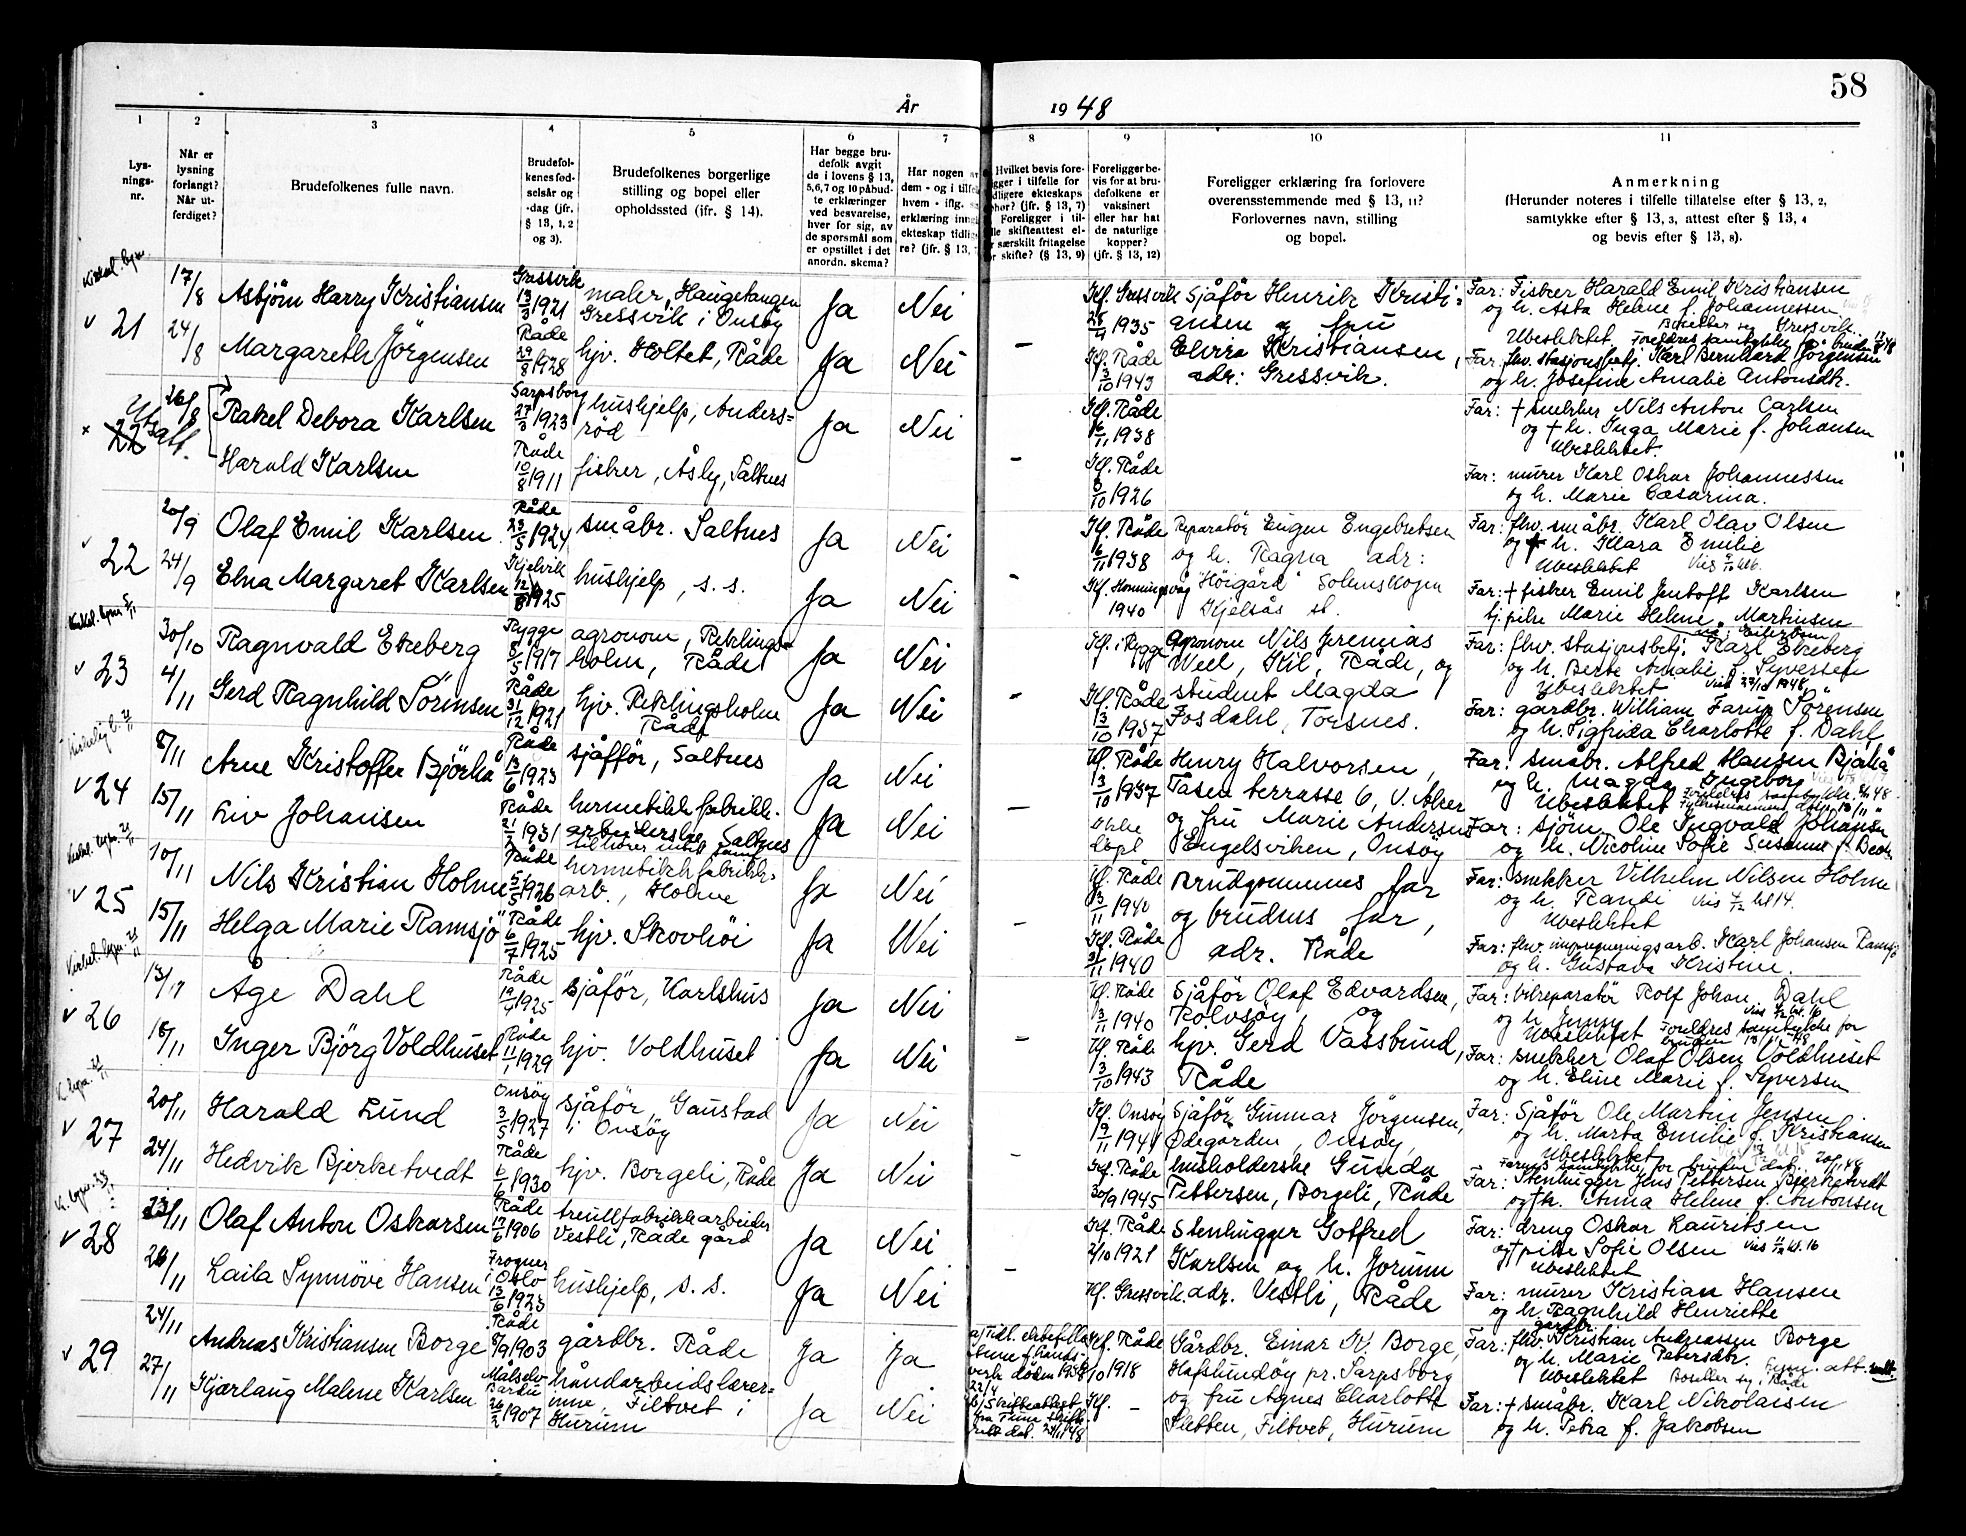 58
År 1948
1 2 3 4 5 6 7 8 9 10 11
Lysningsnr.
Når er lysning forlangt? Når utferdiget?
Brudefolkenes fulle navn.
Brudefolkenes fødselsår og -dag (jfr. § 13, 1, 2 og 3).
Brudefolkenes borgerlige stilling og bopel eller opholdssted (jfr. § 14).
Har begge brudefolk avgit de i lovens § 13, 5,6,7 og 10 påbudte erklæringer ved besvarelse, hver for sig, av de spørsmål som er opstillet i det anordn. skema?
Har nogen av dem - og i tilfelle hvem - iflg.
erklæring inngått ekteskap tidligere? (jfr. § 13,
Hvilket bevis foreligger i tilfelle for tidligere ekteskaps ophør? (jfr. § 13, 7) Foreligger i tilfelle skifteattest eller særskilt fritagelse for skifte? (§ 13, 9)
Foreligger bevis for at brudefolkene er vaksinert eller har hat de naturlige kopper? (jfr. § 13, 12)
Foreligger erklæring fra forlovere overensstemmende med § 13, 11? Forlovernes navn, stilling og bopel.
Anmerkning (Herunder noteres i tilfelle tillatelse efter § 13, 2, samtykke efter § 13, 3, attest efter § 13, 4 og bevis efter § 13, 8).
21 17/8 Asbjörn Harry Kristiansen Gressvik 13/3 1921 maler, Haugetangen Gressvik i Onsøy Ja Nei
Kf. Gressvik 28/4 1935 Sjåför Henrik Kristiansen og fru
Far: Fisker Harald Emil Kristiansen og h. Asta Helene f. Johannessen
Ubeslektet. Foreldres samtykke for bruden
24/8 Margareth Jörgensen Råde 29/8 1928 hjv. Holtet, Råde Ja Nei
Kf. Råde 3/10 1943 Elvira Kristiansen, adr: Gressvik.
Far: fhv. stasjonsbetj. Karl Bernhard Jörgensen og h. Josefine Amalie Antonsdtr.
26/8 Rakel Debora Karlsen Sarpsborg 27/3 1923 hushjelp, Andersröd Ja Nei
Kf. Råde 6/11 1938
Far: + snekker Nils Anton Carlsen og + h. Inga Marie f. Johansen
Ubeslektet.
Harald Karlsen Råde 10/8 1911 fisker, Åsly, Saltnes
Kf. Råde 3/10 1926
Far: murer Karl Oskar Johannessen og h. Marie Cæsarina.
22 20/9 Olaf Emil Karlsen Råde 23/5 1924 småbr. Saltnes Ja Nei
Kf. Råde 6/11 1938 Reparatör Eugen Engebretsen og h. Ragna adr:
Far: fhv. småbr. Karl Olav Olsen og h. Klara Emilie
Ubeslektet
24/9 Elna Margaret Karlsen Kjelvik 12/8 1925 hushjelp, s. s. Ja Nei
Kf. Honningsvåg 1940 "Höigård" Solemskogen Kjelsås st.
Far: + fisker Emil Jentoft Karlsen
pike Marie Helene Martinsen
23 30/10 Ragnvald Ekeberg Rygge 8/5 1917 agronom, Reklingsholm, Råde Ja Nei
Kf. i Rygge Agronom Nils Jeremias Weel, Kil, Råde, og
Far: fhv. stasjonsbetj. Karl Ekeberg og h. Berte Amalie f. Syversen
Ubeslektet
4/11 Gerd Ragnhild Sörensen Råde 31/12 1921 hjv. Reklingsholm Råde Ja Nei
Kf. Råde 3/10 1937 student Magda Fosdahl, Torsnes.
Far: gårdbr. William Farup Sörensen og h. Sigfrida Charlotte f. Dahl
24 8/11 Arne Kristoffer Björkå Råde 13/6 1923 sjåffør, Saltnes Ja Nei
Kf. Råde 3/10 1937 Henry Halvorsen, Tåsen terrasse 6, V. Aker
Far: småbr. Alfred Hansen Bjørkå og h. Magda Ingeborg
Ubeslektet
15/11 Liv Johansen Råde 21/2 1931 hermetikkfabrikkarbeiderske Saltnes Ja Nei
Ikke döpt og fru Marie Andersen Engelsviken, Onsöy
Far: sjöm. Ole Ingvald Johansen og h. Nicoline Sofie Susanne f. Beck
25 10/11 Nils Kristian Holme Råde 5/5 1926 hermetikkfabrikkarb., Holme Ja Nei
Kf. Råde 3/11 1940 Brudgommens far og brudens far,
Far: snekker Vilhelm Nilsen Holme og h. Randi
Ubeslektet
15/11 Helga Marie Ramsjö Råde 6/7 1925 hjv. Skovhöi Ja Nei
Kf. Råde 3/11 1940 adr. Råde
Far: fhv. impregneringsarb. Karl Johansen Ramsjö og h. Gustava Kristine.
26 13/11 Åge Dahl Råde 19/4 1925 sjåför, Karlshus Ja Nei
Kf. Råde 3/11 1940 Sjåför Olaf Edvardsen, Rolvsöy, og
Far: bilreparatör Rolf Johan Dahl og h. Jenny
Ubeslektet Foreldres samtykke for bruden 13/11 48
18/11 Inger Björg Voldhuset Råde 11/1 1929 hjv. Voldhuset Ja Nei
Kf. Råde 3/10 1943 hjv. Gerd Vassbund, Råde
Far: snekker Olaf Olsen Voldhuset og h. Eline Marie f. Syversen
27 20/11 Harald Lund Onsöy 3/5 1927 sjåför, Gaustad i Onsöy Ja Nei
Kf. Onsöy 9/11 1941 Sjåför Gunnar Jörgensen, Ødegården, Onsöy,
Far: Sjåför Ole Martin Jensen og h. Marta Emilie f. Kristiansen
Ubeslektet
Farens samtykke for bruden dat. 20/11 48
24/11 Hedvik Bjerketvedt Råde 6/6 1930 hjv. Borgeli, Råde Ja Nei
Kf. Råde 30/9 1945 husholderske Gunda Pettersen, Borgeli, Råde
Far: Stenhugger Jens Pettersen Bjerketvedt og + h. Anna Helene f. Antonsen
28 23/11 Olaf Anton Oskarsen Råde 13/6 1906 treullfabrikkarbeider Vestli, Råde gård Ja Nei
Kf. Råde 2/10 1921 Stenhugger Gotfred Karlsen og h. Jorunn
Far: dreng Oskar Lauritsen og + pike Sofie Olsen
Ubeslektet
26/11 Laila Synnöve Hansen Frogner i Oslo 13/6 1923 hushjelp, s. s. Ja Nei
Kf. Gressvik. adr. Vestli, Råde
Far: murer Kristian Hansen og h. Ragnhild Henriette
29 24/11 Andreas Kristiansen Borge Råde 8/9 1903 gårdbr. Råde Ja Ja
Kf. Råde 1918 Gårdbr. Einar K. Borge, Hafslundsöy pr. Sarpsborg
Far: fhv. gårdbr. Kristian Andreassen Borge og h. Marie Petersdtr.
Ubeslektet Bosetter sig i Råde
27/11 Kjærlaug Malene Karlsen Målselv Bardu 26/2 1907 håndarbeidslærerinne, Filtvet i Hurum Ja Nei
Kf. – og fru Agnes Charlotte Sletten, Filtvet, Hurum
Far: + småbr. Karl Nikolaisen og h. Petra f. Jakobsen